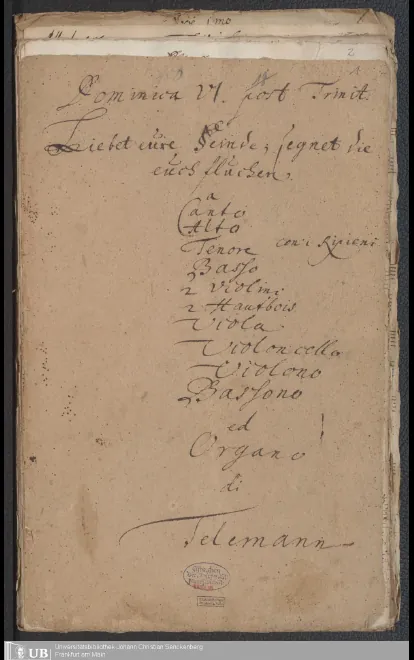 2
Dominica VI. post Trinit:
Liebet eure Feinde, segnet die
euch fluchen,
a
Canto
Alto
Tenore con: Ripieni
Basso
2 Violini
2 Hautbois
Viola
Violoncello
Violono
Bassono
ed
Organo
di
Telemann
UB
Universitätsbibliothek Johann Christian Senckenberg
Frankfurt am Main